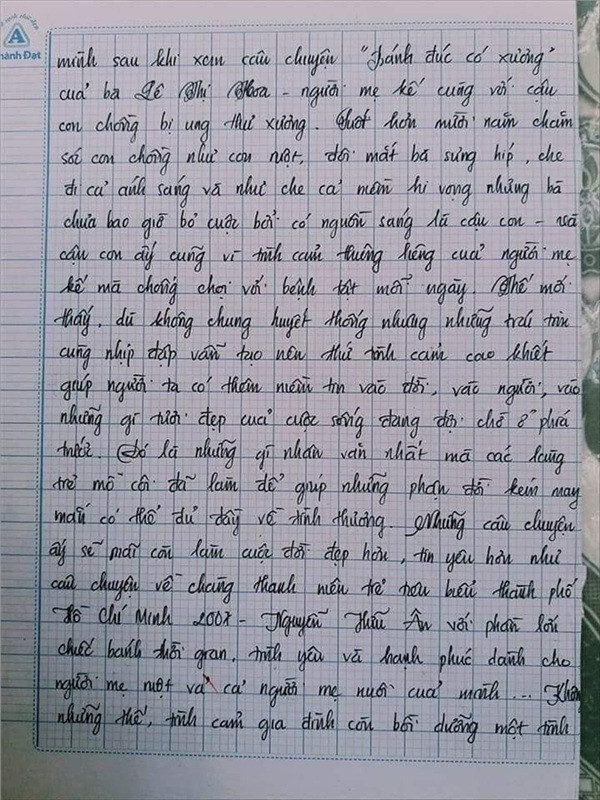 A
ành Đạt
mình sau khi xem câu chuyện "Bánh đúc có xương"
của bà Lê Thị Hoa - người mẹ kế cùng với cậu
con chồng bị ung thư xương. Suốt hơn mười năm chăm
sóc con chồng như con ruột, đôi mắt bà sưng híp, che
đi cả ánh sáng và như che cả niềm hi vọng nhưng bà
chưa bao giờ bỏ cuộc bởi có nguồn sáng là cậu con - và
cậu con ấy cũng vì tình cảm thiêng liêng của người mẹ
kế mà chống chọi với bệnh tật mỗi ngày. Thế mới
thấy, dù không chung huyết thống nhưng những trái tim
cùng nhịp đập vẫn tạo nên thứ tình cảm cao khiết
giúp người ta có thêm niềm tin vào đời, vào người, vào
những gì tươi đẹp của cuộc sống đang đợi chờ ở phía
trước. Đó là những gì nhân văn nhất mà các làng
trẻ mồ côi đã làm để giúp những phận đời kém may
mắn có thể đủ đầy về tình thương. Những câu chuyện
ấy sẽ mãi còn làm cuộc đời đẹp hơn, tin yêu hơn như
câu chuyện về chàng thanh niên trẻ tiêu biểu thành phố
Hồ Chí Minh 2007 - Nguyễn Hữu Ân với phần lớn
chiếc bánh thời gian, tình yêu và hạnh phúc dành cho
người mẹ ruột và cả người mẹ nuôi của mình... Không
những thế, tình cảm gia đình còn bồi dưỡng một tình